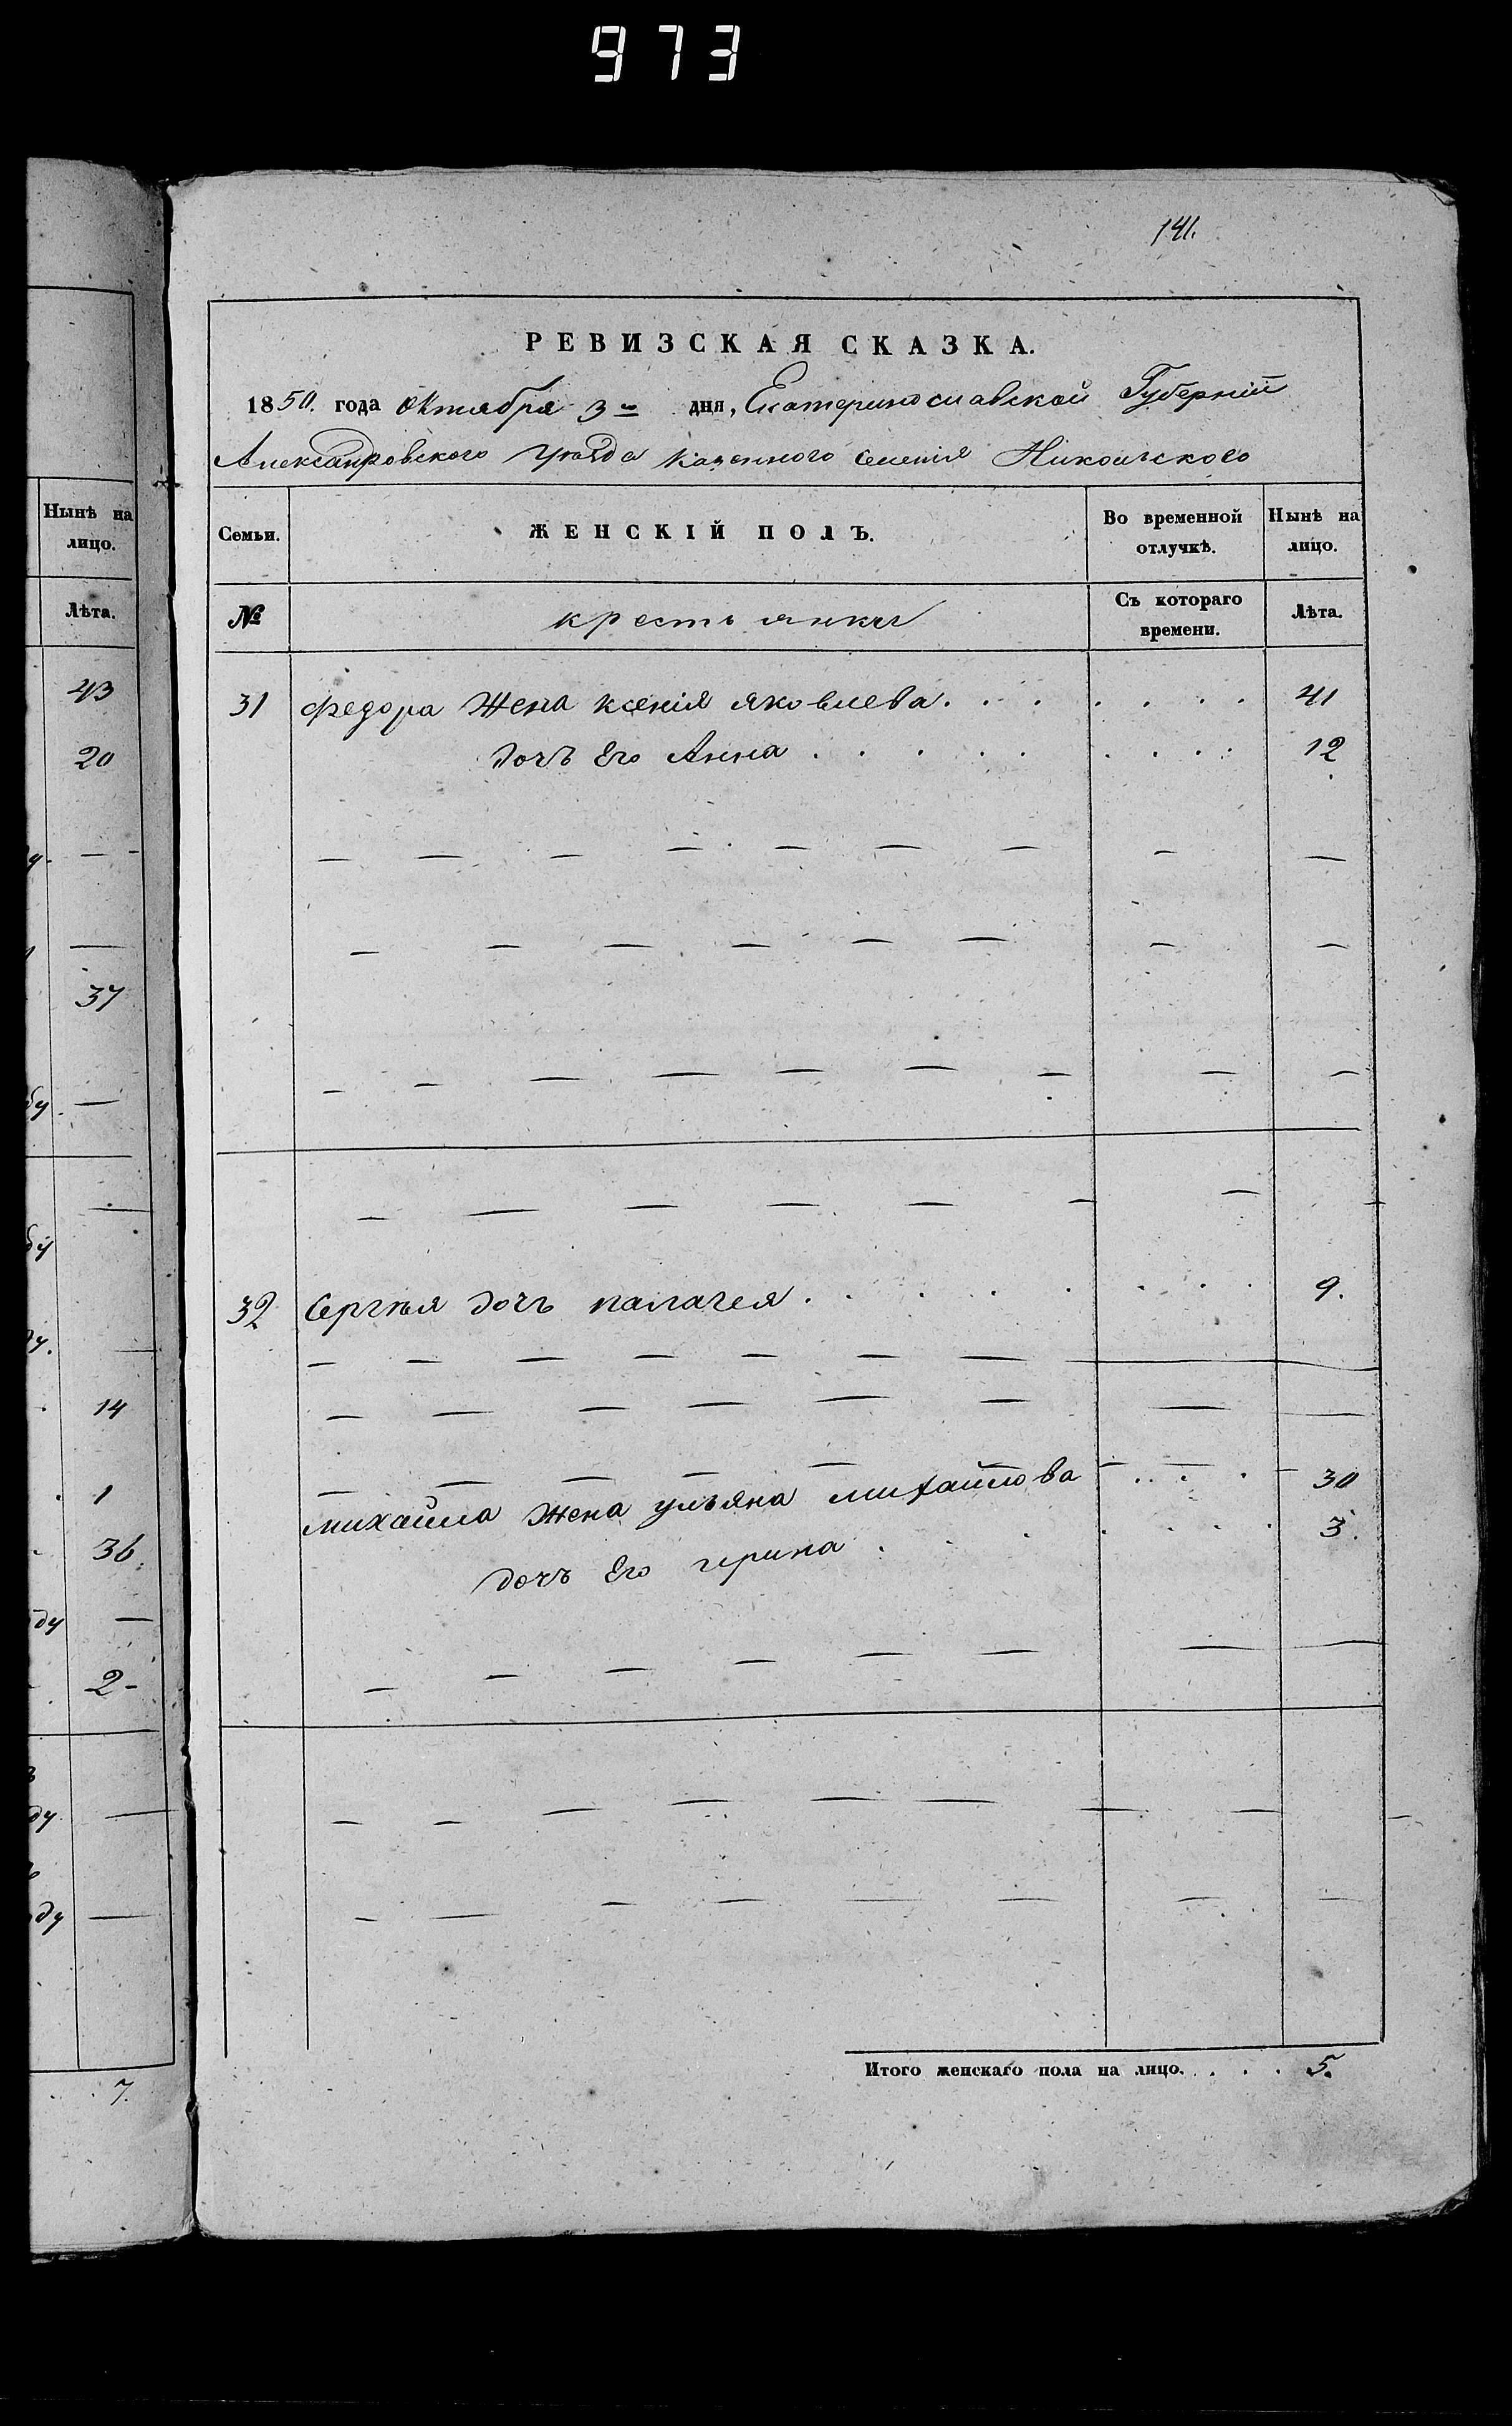 973
141.
РЕВИЗСКАЯ СКАЗКА.
1850. года октября 3го дня, Екатеринославской Губерніи
Александровского Уѣзда казенного селенія Никольского
Нынѣ на лицо.
Семьи.
ЖЕНСКІЙ ПОЛЪ.
Во временной отлучкѣ.
Нынѣ на лицо.
Лѣта.
№
крестьянки
Съ котораго времени.
Лѣта.
43
31 федора жена ксенія яковлева 41
20
дочъ его Анна 12
37
ду
32 Сергѣя дочъ палагея 9.
14
1
михайла жена ульяна михайлова 30
36.
дочъ его 3.
ду
2
ду
ду
Итого женскаго пола на лицо. 5.
7.